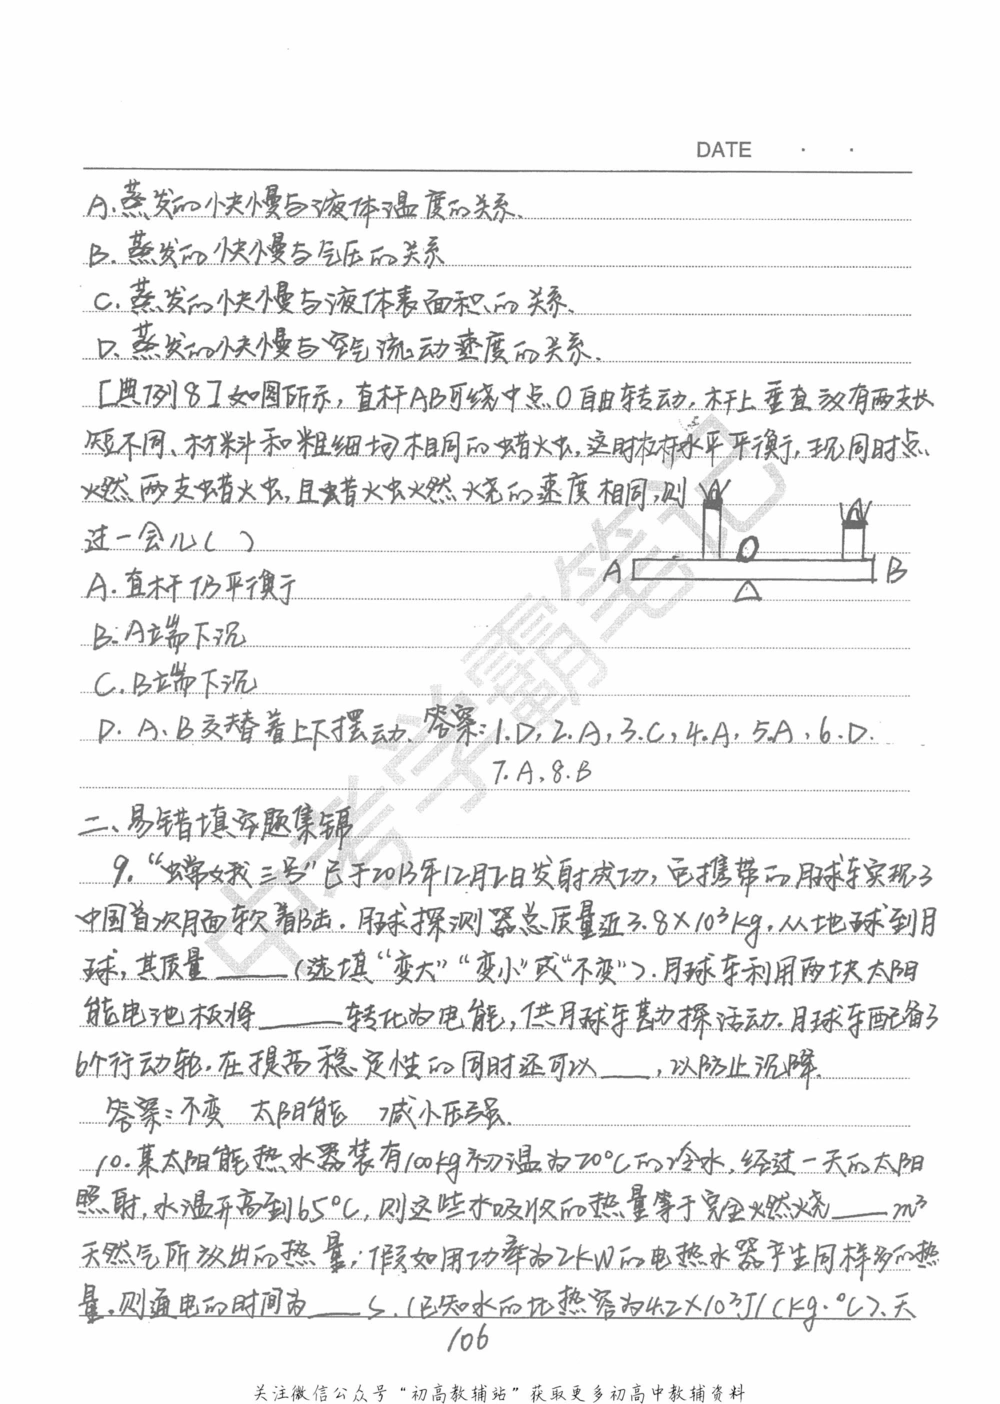 DATE · ·
A.蒸发的快慢与液体温度的关系.
B.蒸发的快慢与气压的关系
C.蒸发的快慢与液体表面积的关系.
D.蒸发的快慢与空气流动速度的关系.
[典例8]如图所示,直杆AB可绕中点O自由转动,杆上垂直放有两支长
短不同、材料和粗细均相同的蜡烛,这时杠杆水平平衡,现同时点
燃两支蜡烛,且蜡烛燃烧的速度相同,则
过一会儿( )
A.直杆仍平衡
B.A端下沉
C.B端下沉
D.A、B交替着上下摆动.答案:1.D,2.A,3.C,4.A,5.A,6.D.
7.A,8.B
A O B
二、易错填空题集锦
9.“嫦娥三号”已于2013年12月2日发射成功,它携带的月球车实现了
中国首次月面软着陆.月球探测器总质量近3.8×10³kg,从地球到月
球,其质量____(选填“变大”“变小”或“不变”).月球车利用两块太阳
能电池板将____转化为电能,供月球车勘探活动.月球车配备了
6个行动轮.在提高稳定性的同时还可以___,以防止沉降.
答案:不变 太阳能 减小压强.
10.某太阳能热水器装有100kg初温为20°C的冷水,经过一天的太阳
照射,水温升高到65°C,则这些水吸收的热量等于完全燃烧___m³
天然气所放出的热量;假如用功率为2kW的电热水器产生同样多的热
量,则通电的时间为___s.(已知水的比热容为4.2×10³J/(kg·°C)、天
106
关注微信公众号“初高教辅站”获取更多初高中教辅资料
中考学霸笔记